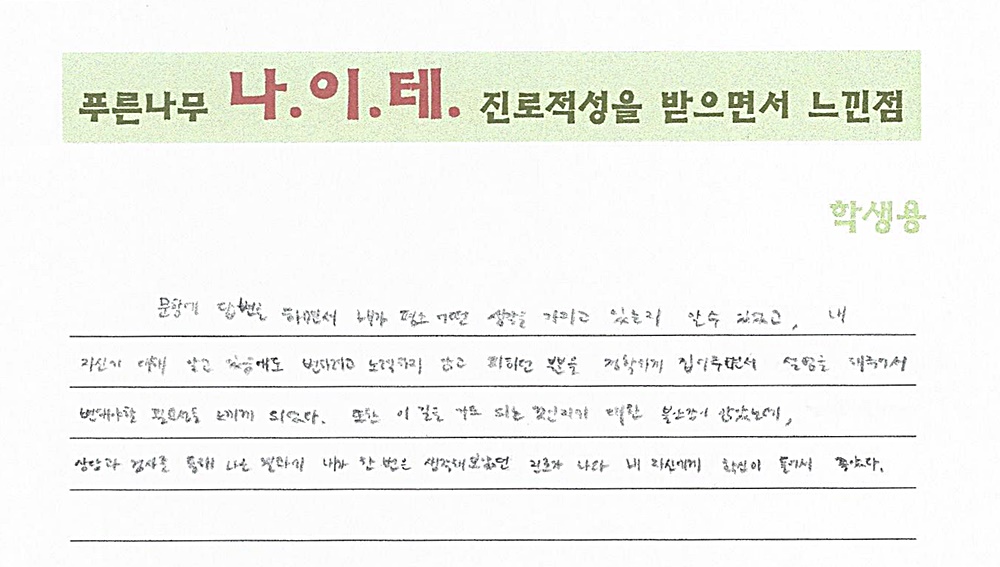 푸른나무 나.이.테. 진로적성을 받으면서 느낀점
학생용
문항에 답변을 하면서 내가 평소 어떤 생각을 가지고 있는지 알수 있었고, 내
자신에 대해 알고 있음에도 변하려고 노력하지 않고 피하던 부분을 정확하게 집어주면서 설명을 해주어서
변해야할 필요성을 느끼게 되었다. 또한 이 길을 가도 되는 것인지에 대한 불안감이 많았는데,
상담과 검사를 통해 나온 결과에 내가 한 번은 생각해보았던 진로가 나와 내 자신에게 확신이 들어서 좋았다.